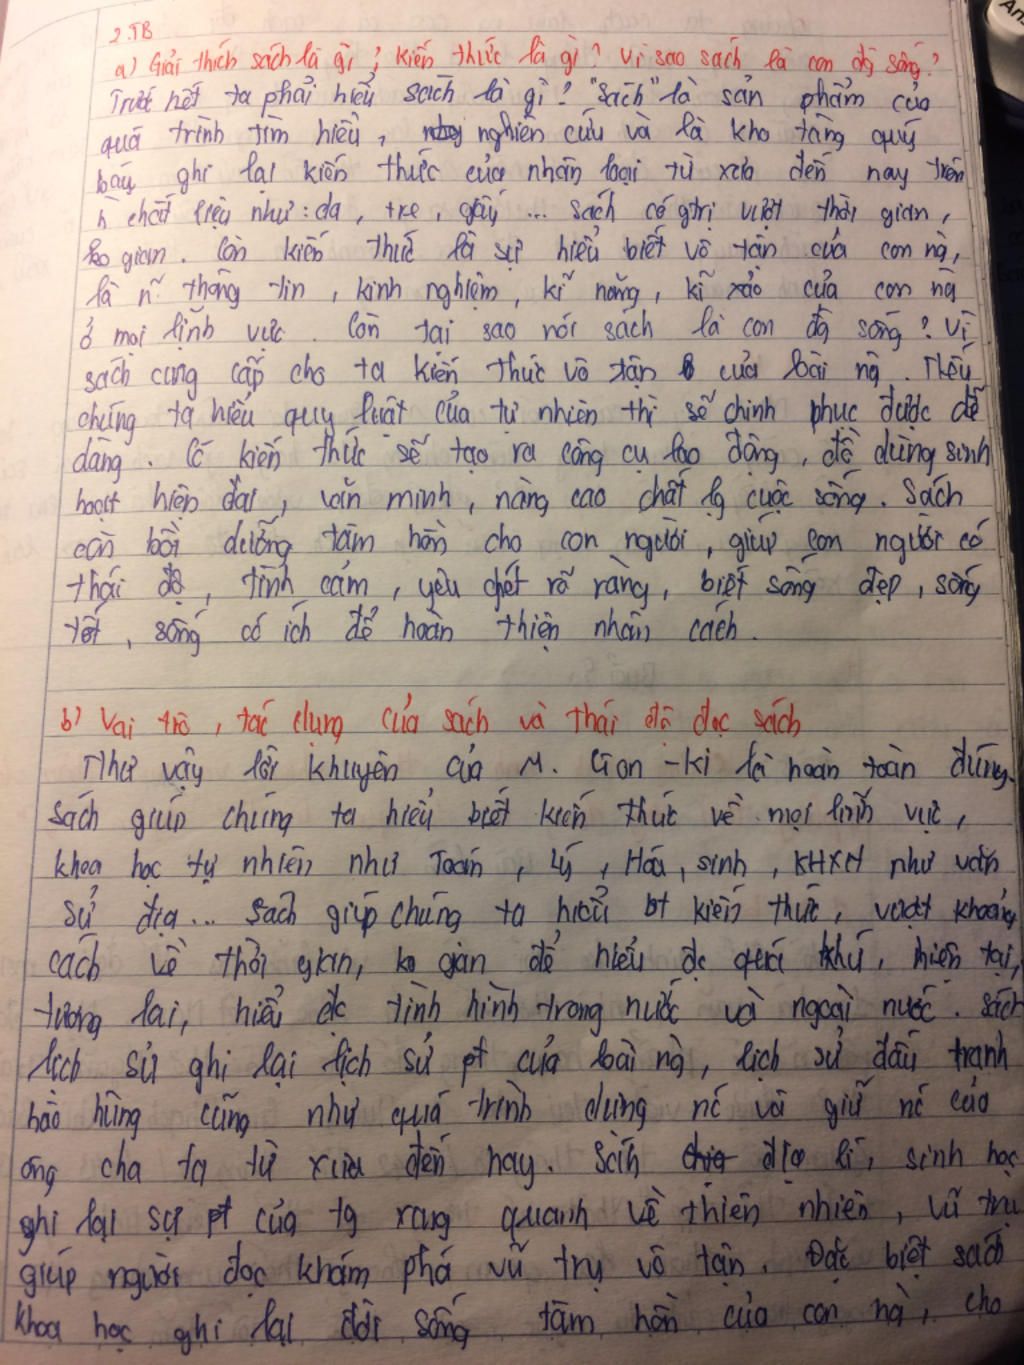 2.TB
a) Giải thích sách là gì ; kiến thức là gì ? Vì sao sách là con đg sống ?
Trước hết ta phải hiểu sách là gì ? "Sách" là sản phẩm của
quá trình tìm hiểu, nghiên cứu và là kho tàng quý
báu ghi lại kiến thức của nhân loại từ xưa đến nay trên
n` chất liệu như : da, tre, giấy ... sách có gtrị vượt thời gian,
ko gian. Còn kiến thức là sự hiểu biết vô tận của con ng`,
là n~ thông tin, kinh nghiệm, kĩ năng, kĩ xảo của con ng`
ở mọi lĩnh vực. Còn tại sao nói sách là con đg sống ? Vì
sách cung cấp cho ta kiến thức vô tận của loài ng`. Nếu
chúng ta hiểu quy luật của tự nhiên thì sẽ chinh phục được dễ
dàng. Có kiến thức sẽ tạo ra công cụ lao động, đồ dùng sinh
hoạt hiện đại, văn minh, nâng cao chất lg cuộc sống. Sách
còn bồi dưỡng tâm hồn cho con người, giúp con người có
thái độ, tình cảm, yêu ghét rõ ràng, biết sống đẹp, sống
tốt, sống có ích để hoàn thiện nhân cách.
b) Vai trò, tác dụng của sách và thái độ đọc sách
Như vậy lời khuyên của M. Gon-ki là hoàn toàn đúng.
Sách giúp chúng ta hiểu biết kiến thức về mọi lĩnh vực,
khoa học tự nhiên như Toán, Lý, Hóa, sinh, KHXH như văn
sử địa... Sách giúp chúng ta hiểu bt kiến thức, vượt khoảng
cách về thời gian, ko gian để hiểu đc quá khứ, hiện tại,
tương lai, hiểu đc tình hình trong nước và ngoài nước. Sách
lịch sử ghi lại lịch sử pt của loài ng`, lịch sử đấu tranh
hào hùng cũng như quá trình dựng nc và giữ nc của
ông cha ta từ xưa đến nay. Sách địa lí, sinh học
ghi lại sự pt của tg xung quanh về thiên nhiên, vũ trụ
giúp người đọc khám phá vũ trụ vô tận. Đặc biệt sách
khoa học ghi lại đời sống tâm hồn của con ng`, cho